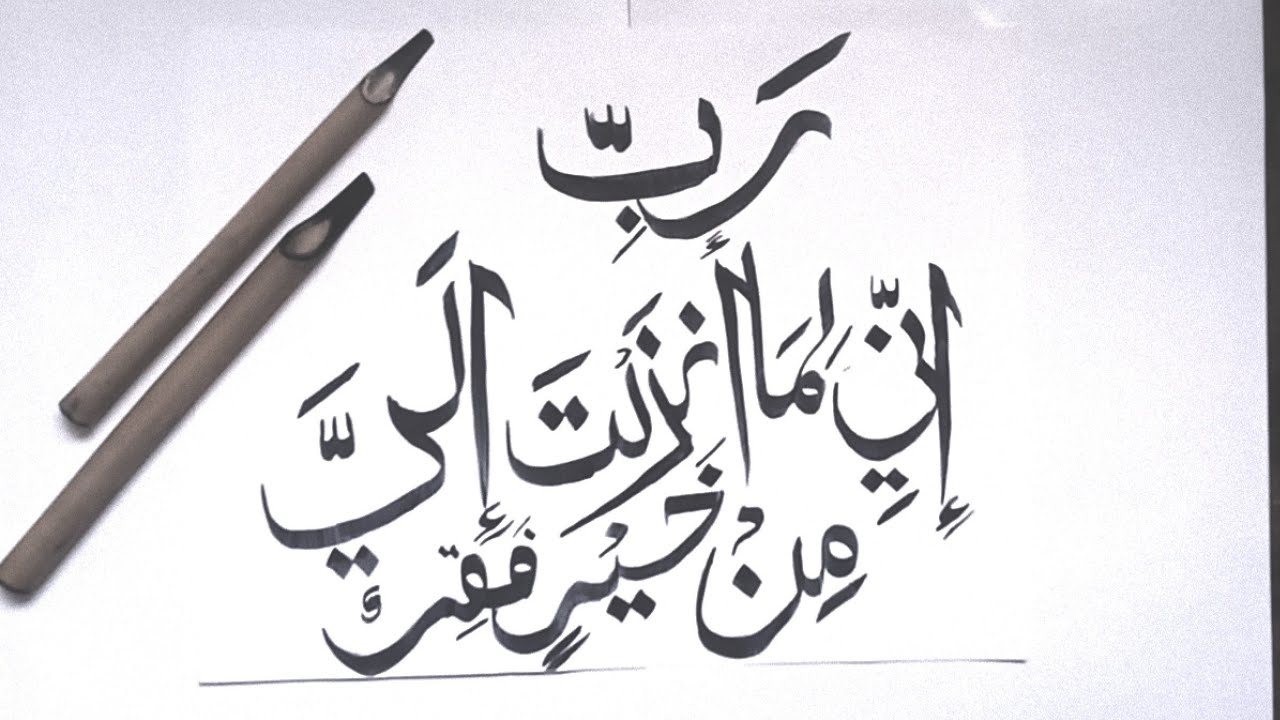 رَبِّ
إِنِّي لِمَا أَنزَلْتَ إِلَيَّ
مِنْ خَيْرٍ فَقِيرٌ